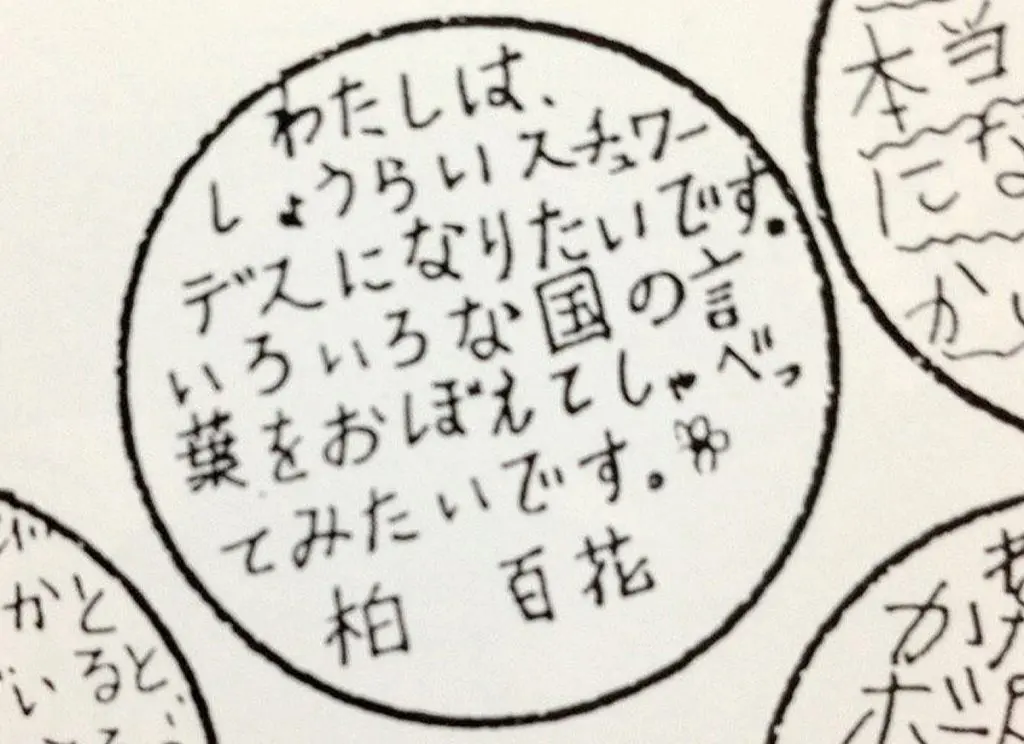 わたしは、
しょうらいスチュワー
デスになりたいです。
いろいろな国の言
葉をおぼえてしゃべっ
てみたいです。
柏 百花
本当
にな
か
かと
いると
か
ボー